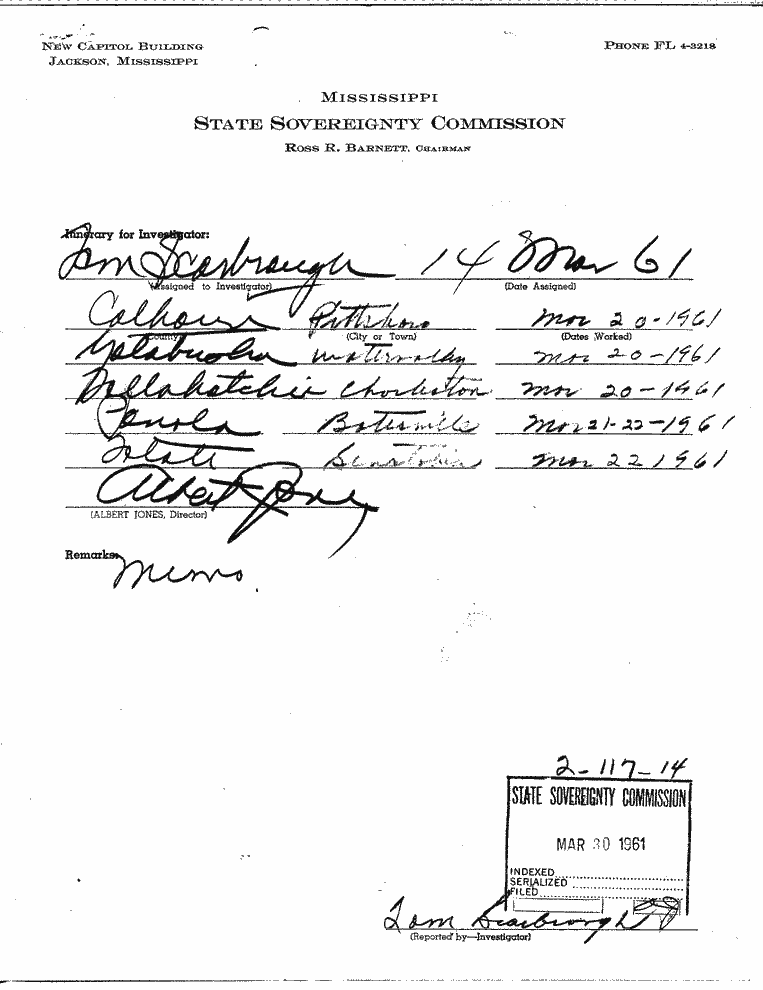 NEW CAPITOL BUILDING
JACKSON, MISSISSIPPI
PHONE FL 4-3218
MISSISSIPPI
STATE SOVEREIGNTY COMMISSION
ROSS R. BARNETT, CHAIRMAN
Itinerary for Investigator:
Tom Scarbrough 14 Mar 61
(Assigned to Investigator) (Date Assigned)
Calhoun Pittsboro Mar 20-1961
(County) (City or Town) (Dates Worked)
Yalabusha Mar 20-1961
Tallahatchie Charleston Mar 20-1961
Panola Batesville Mar 21-22-1961
Tate Senatobia Mar 22 1961
Albert Jones
(ALBERT JONES, Director)
Remarks:
Memo.
2-117-14
STATE SOVEREIGNTY COMMISSION
MAR 30 1961
INDEXED
SERIALIZED
FILED
Tom Scarbrough
(Reported by—Investigator)